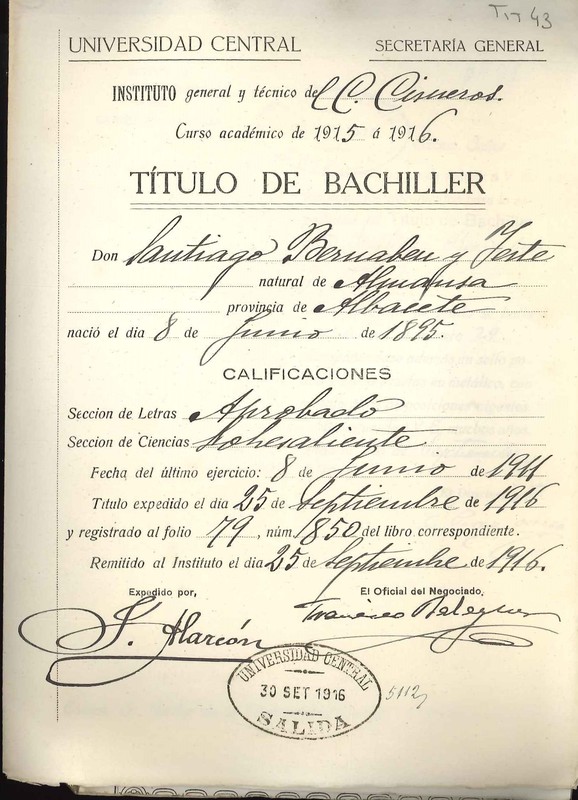 Tit 43
UNIVERSIDAD CENTRAL SECRETARÍA GENERAL
INSTITUTO general y técnico del C. Cisneros.
Curso académico de 1915 á 1916.
TÍTULO DE BACHILLER
Don Santiago Bernabeu y Yeste
natural de Almansa
provincia de Albacete
nació el dia 8 de Junio de 1895.
CALIFICACIONES
Seccion de Letras Aprobado
Seccion de Ciencias Sobresaliente
Fecha del último ejercicio: 8 de Junio de 1911
Título expedido el dia 25 de Septiembre de 1916
y registrado al folio 79, núm. 1850 del libro correspondiente.
Remitido al Instituto el dia 25 de Septiembre de 1916.
Expedido por, El Oficial del Negociado,
Alarcón Francisco
UNIVERSIDAD CENTRAL
30 SET 1916
SALIDA
5112